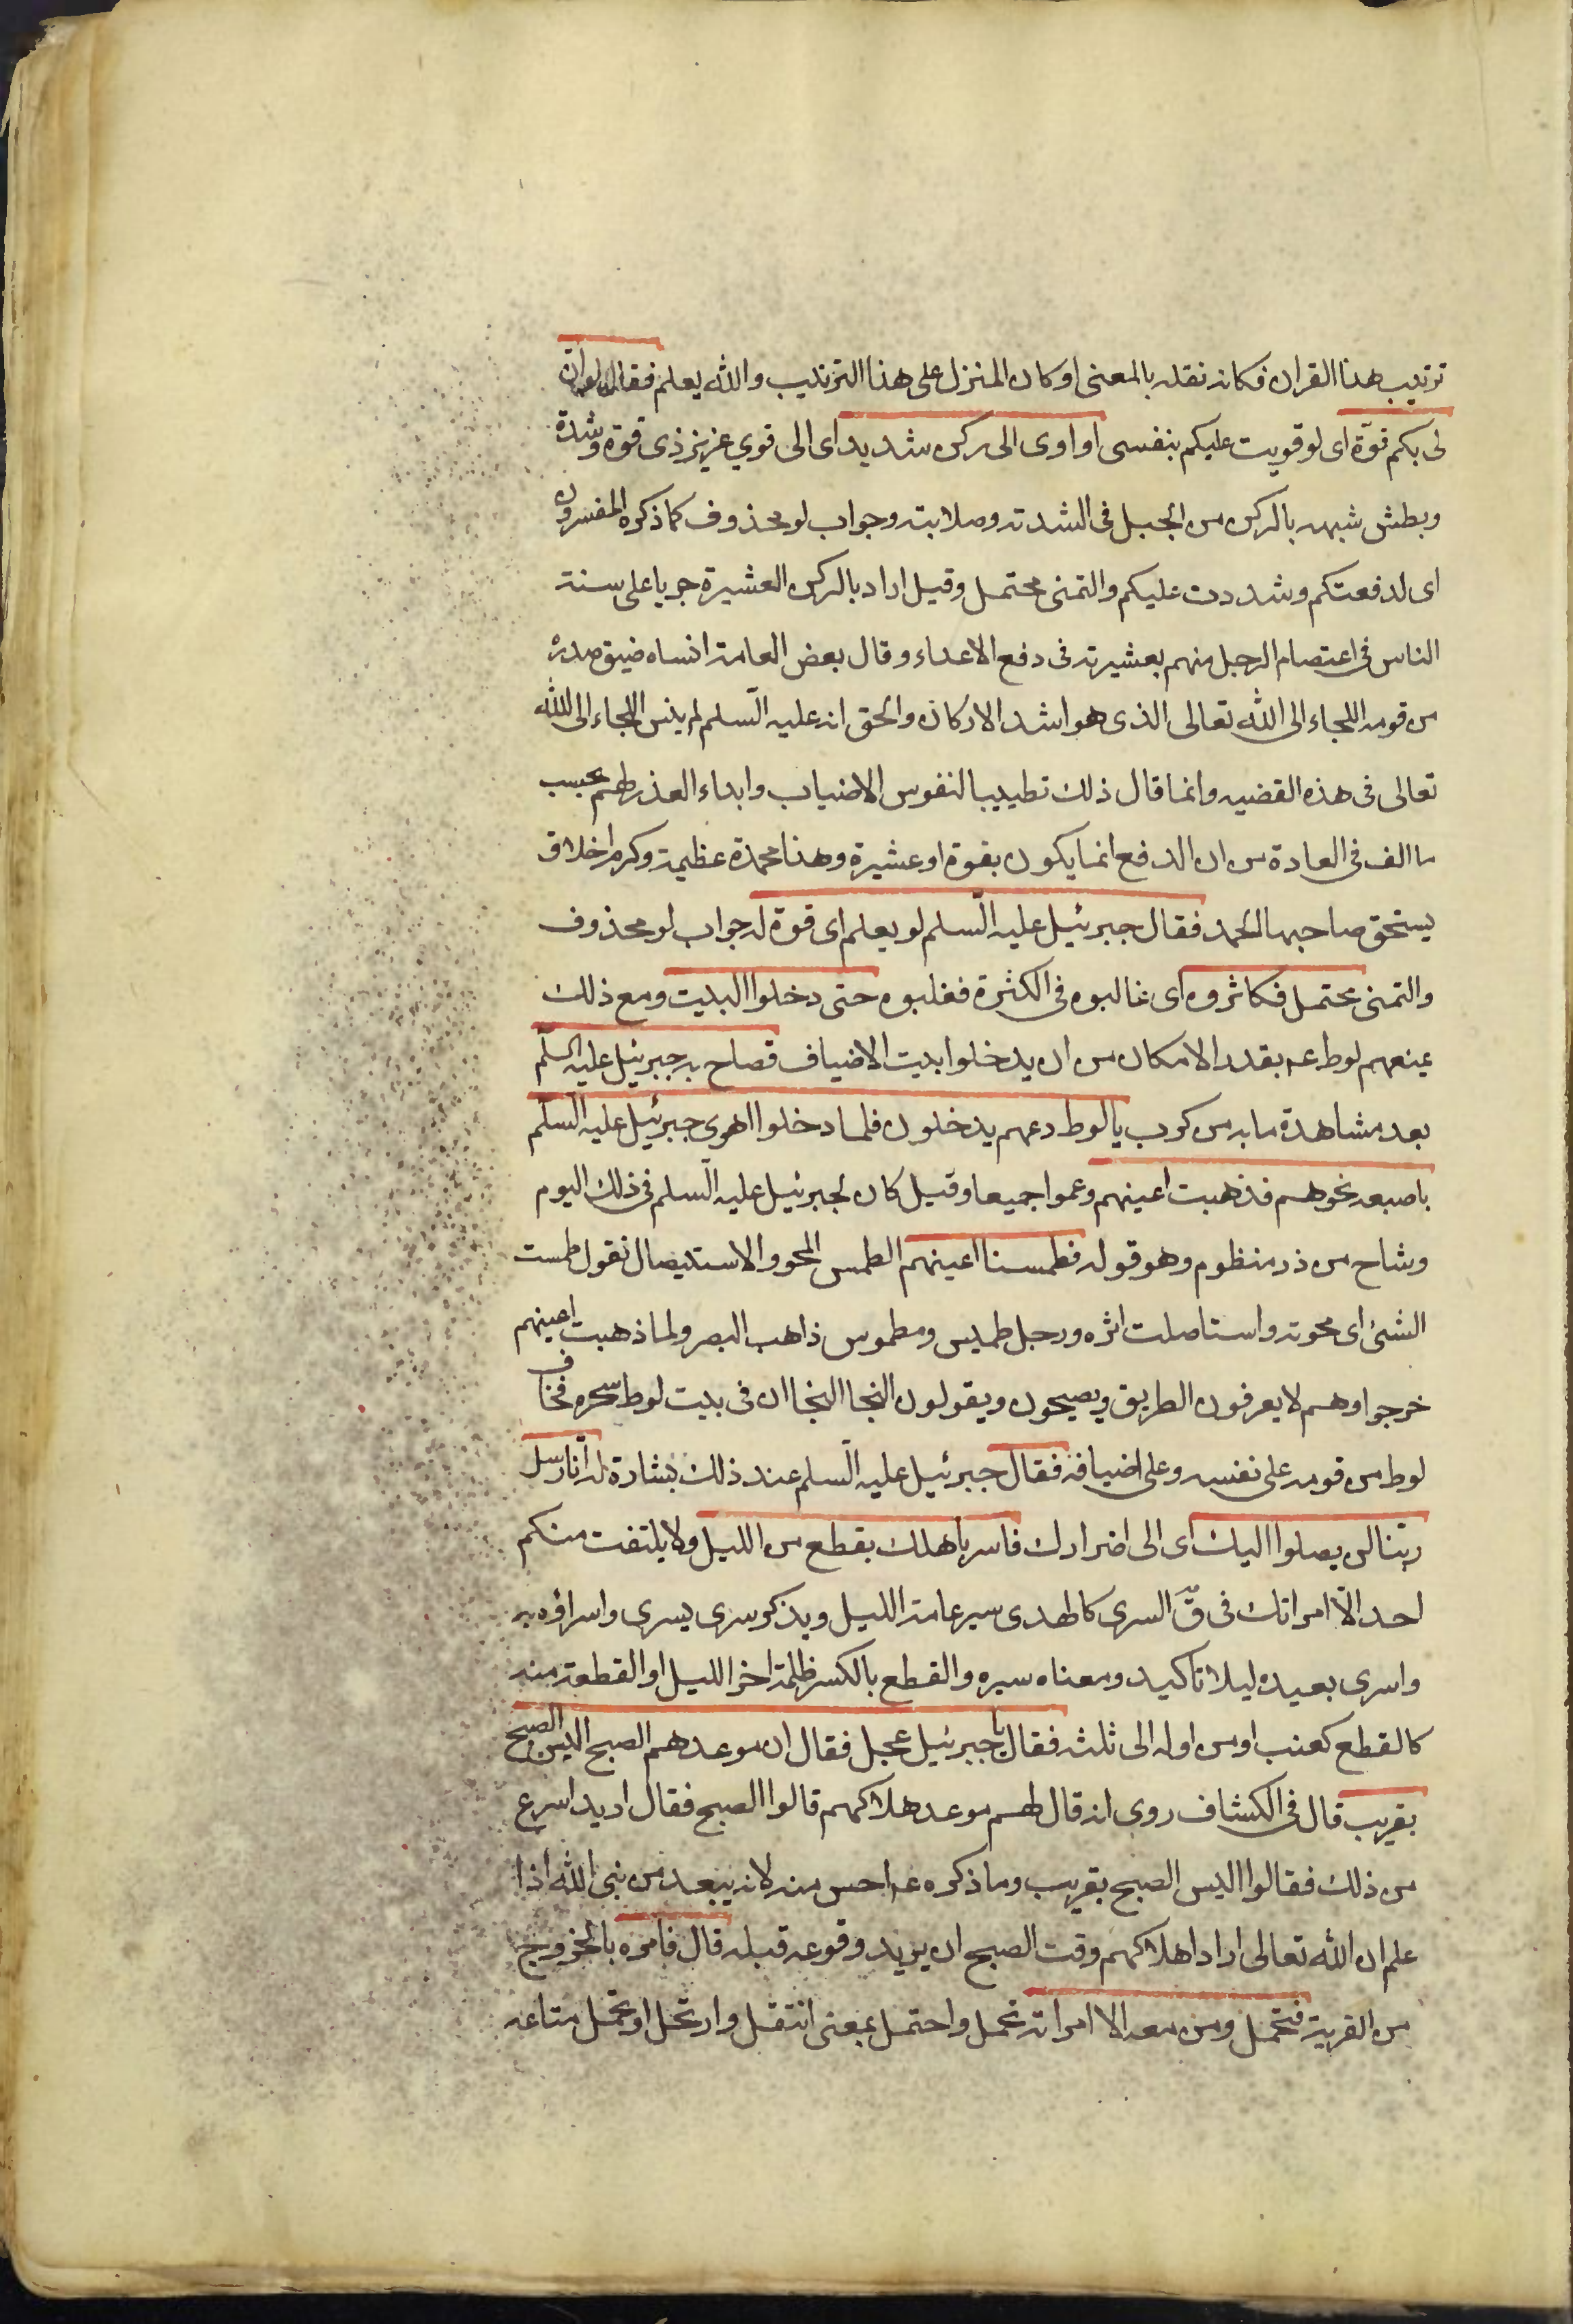 ترتيب هذا القران فكانه نقله بالمعنى او كان المنزل على هذا الترتيب والله يعلم فقال لهم لو ان
لى بكم قوّة اى لو قويت عليكم بنفسى او اوى الى ركن شديد اى الى قوي عزيز ذى قوة وشدة
وبطش شبهه بالركن من الجبل فى الشدته وصلابته وجواب لو محذوف كما ذكره المفسرون
اى لدفعتكم وشددت عليكم والتمنى محتمل وقيل اراد بالركن العشيرة جريا على سنة
الناس فى اعتصام الرجل منهم بعشيرته فى دفع الاعداء وقال بعض العامة انساه ضيق صدره
من قومه اللجاء الى الله تعالى الذى هو اشد الاركان والحق انه عليه السّلم لم ينس اللجاء الى الله
تعالى فى هذه القضيه وانما قال ذلك تطييبا لنفوس الاضياب وابداء العذر لهم بحسب
ما الف فى العادة من ان الدفع انما يكون بقوة او عشيرة وهذا محمدة عظيمة وكرم اخلاق
يستحق صاحبها الحمد فقال جبرئيل عليه السّلم لو يعلم اى قوة له جواب لو محذوف
والتمنى محتمل فكاثروه اى غالبوه فى الكثرة فغلبوه حتى دخلوا البيت ومع ذلك
يمنعهم لوط عم بقدر الامكان من ان يدخلوا بيت الاضياف فصاح به جبرئيل عليه السلم
بعد مشاهدة ما به من كرب يا لوط دعهم يدخلون فلما دخلوا اهوى جبرئيل عليه السّلم
باصبعه نحوهم فذهبت اعينهم وعموا جميعا وقيل كان لجبرئيل عليه السّلم فى ذلك اليوم
وشاح من در منظوم وهو قوله فطمسنا اعينهم الطمس المحو والاستيصال نقول طمست
الشئ اى محوته واستاصلت اثره ورجل طميس ومطموس ذاهب البصر ولما ذهبت اعينهم
خرجوا وهم لا يعرفون الطريق ويصيحون ويقولون النجا النجا ان فى بيت لوط سحره فخاف
لوط من قومه على نفسه وعلى اضيافه فقال جبرئيل عليه السّلم عند ذلك بشارة له انّا رسل
ربّنا لن يصلوا اليك اى الى اضرارك فاسر باهلك بقطع من الليل ولا يلتفت منكم
احد الاّ امراتك فى قّ السرى كالهدى سير عامة الليل ويذكر سرى يسرى واسراؤه به
واسرى بعيده ليلا تاكيد ومعناه سيره والقطع بالكسر ظلمة اخر الليل او القطعة منه
كالقطع كعنب او من اوله الى ثلثه فقال يا جبرئيل عجل فقال ان موعدهم الصبح اليس الصبح
بقريب قال فى الكشاف روى انه قال لهم موعد هلاكهم قالوا الصبح فقال اريد اسرع
من ذلك فقالوا اليس الصبح بقريب وما ذكره عم احسن منه لانه يبعد من نبى الله اذا
علم ان الله تعالى اراد اهلاكهم وقت الصبح ان يريد وقوعه قبله قال فامره بالخروج
من القرية فتحمل ومن معه الا امراته تحمل واحتمل بمعنى انتقل وارتحل او تحمل متاعه